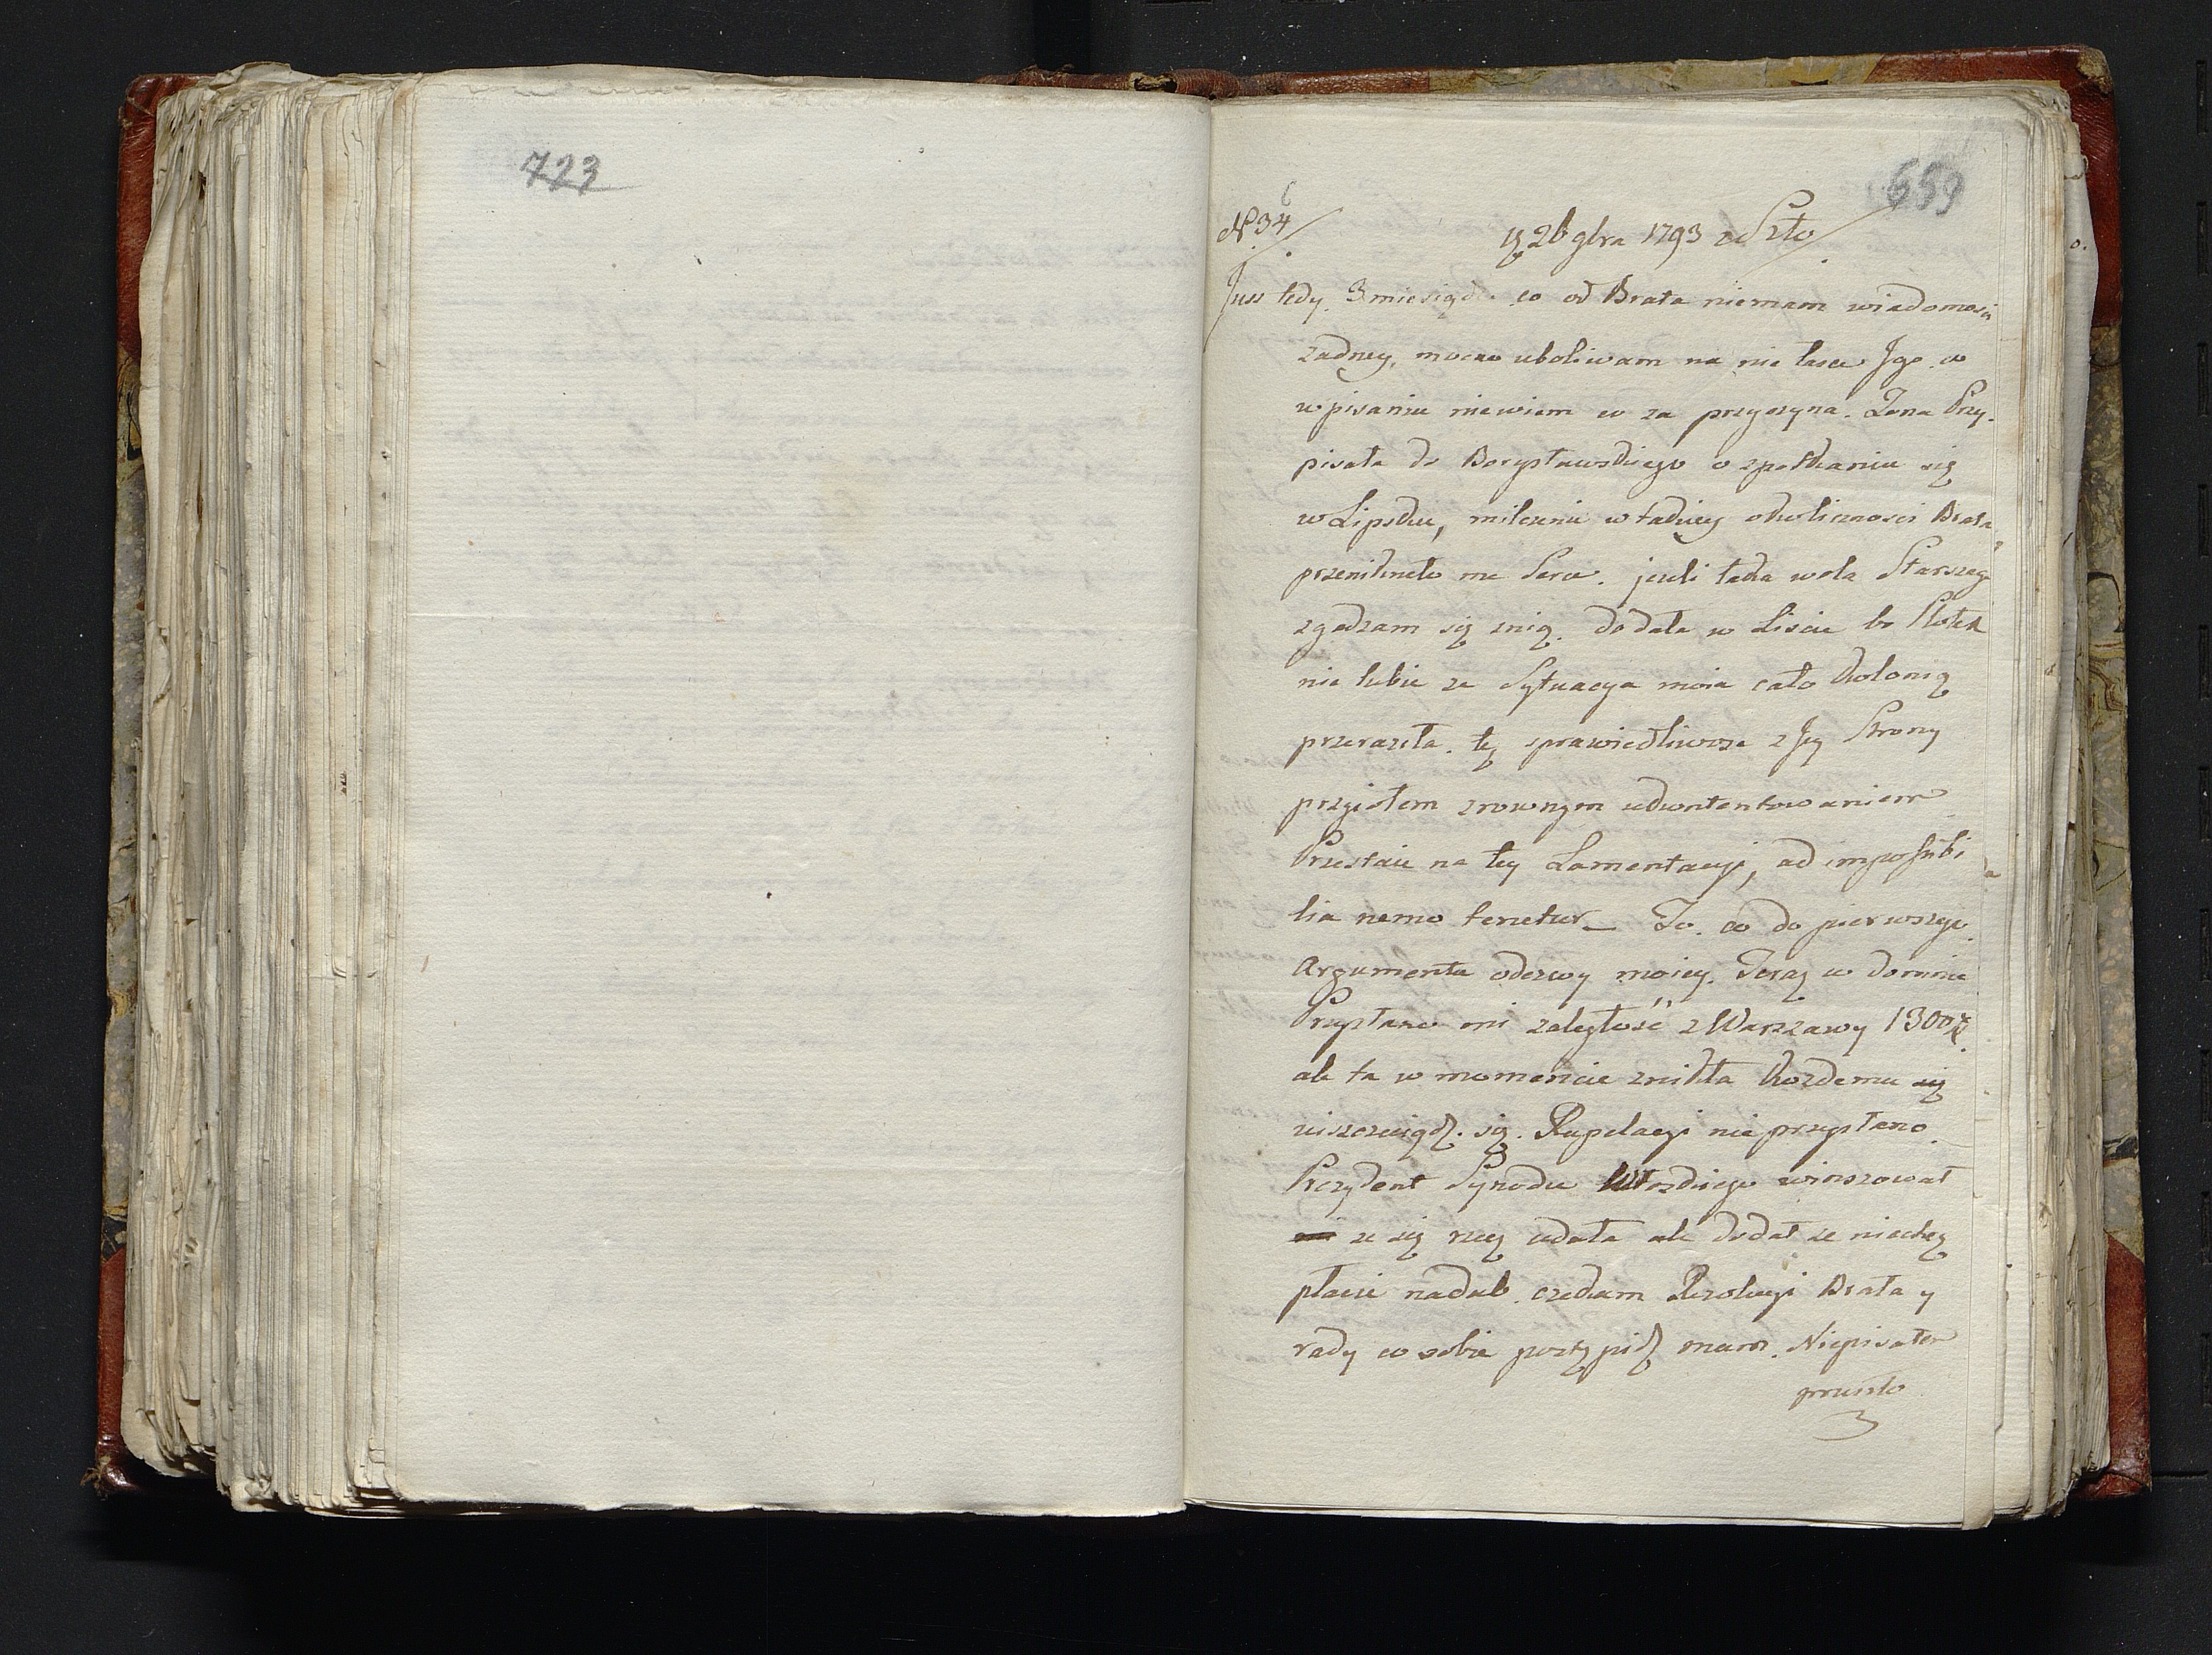 723
659
N 34
26 9bra 1793 odeszło
Juss tedy 3 miesiące co od Brata niemam wiadomości
żadney, mocno uboliwam na nie łasce Jgo w
w pisaniu niewiem co za przyczyna. Żona Przy-
pisała do Borysławskiego o spotkaniu się
w Lipsku, milczenie w takiey okolicznosci Brata
przeniknęło me Serce. jeżeli taka wola Starszego
zgadzam się znią. dodała w Liscie bo Plotek
nie lubie ze Sytuacya moia cało Kolonię
przeraziła. tę sprawiedliwosc z Jey Strony
przyiołem zrownym ukontentowaniem
Przestaie na tey Lamentacyi, ad impossibi
lia nemo tenetur_ To. co do pierwszego
Argumentu odezwy moiey. Teraz w domu
Przysłano mi zaległość z Warszawy 1300#
ale ta w momencie znikła każdemu się
uiszczaiąc. się. Kupelacyi nie przysłano
Prezydent Synodu winszował
mi ze się rzecz udała ale dodał ze niechcę
płacić nadal. czekam Rezolucyi Brata y
rady co sobie postąpić mam. Niepisałem